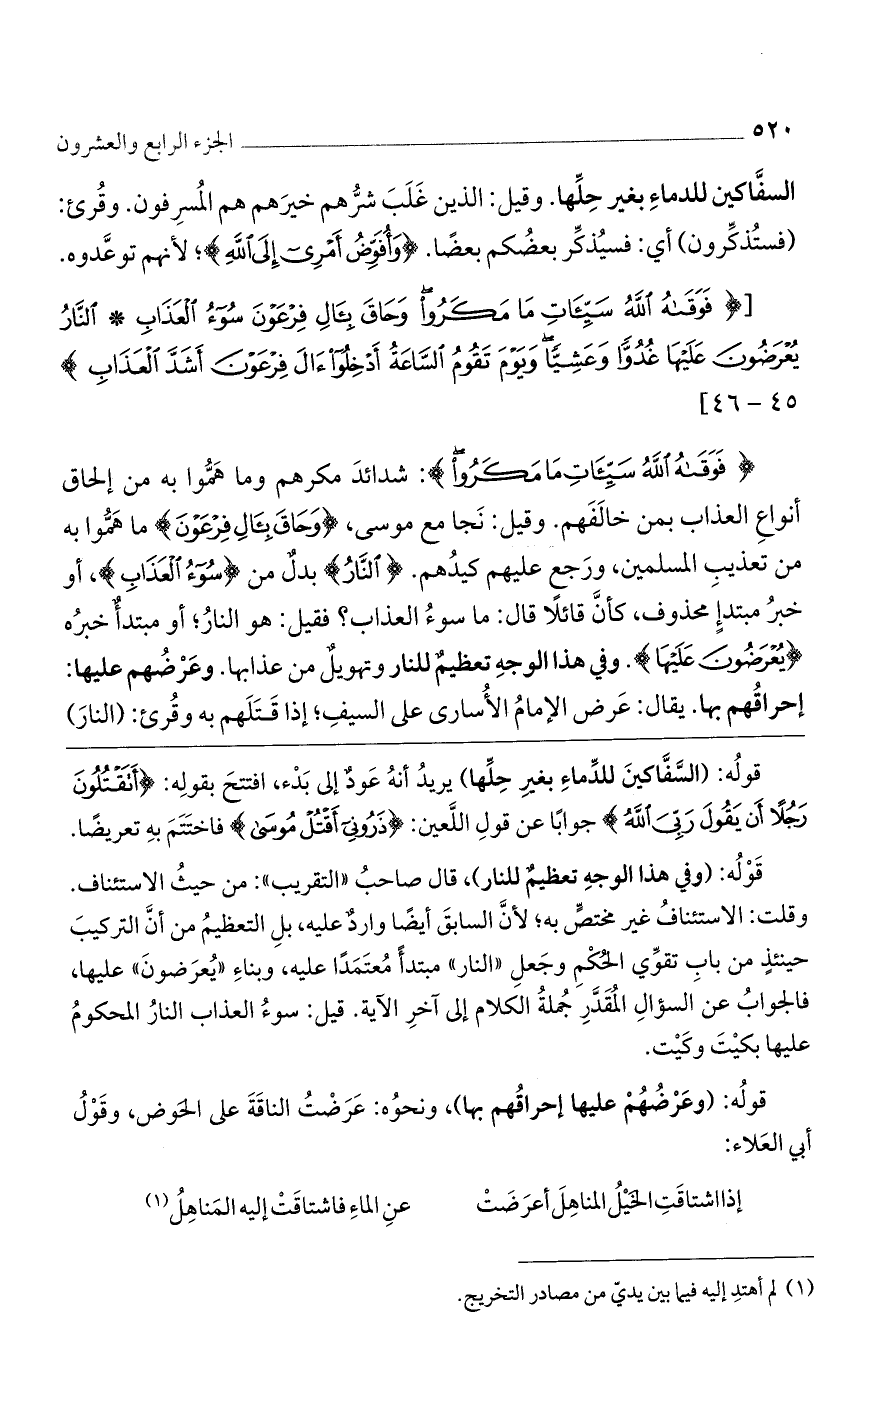 ٥٢٠ الجزء الرابع والعشرون
السفَّاكين للدماءِ بغير حِلِّها. وقيل: الذين غَلَبَ شرُّهم خيرَهم هم المُسرِفون. وقُرئ:
(فستُذكِّرون) أي: فسيُذكِّر بعضُكم بعضًا. ﴿وَأُفَوِّضُ أَمْرِىٓ إِلَى ٱللَّهِ﴾؛ لأنهم توعَّدوه.
[﴿ فَوَقَىٰهُ ٱللَّهُ سَيِّـَٔاتِ مَا مَكَرُوا۟ ۖ وَحَاقَ بِـَٔالِ فِرْعَوْنَ سُوٓءُ ٱلْعَذَابِ * ٱلنَّارُ
يُعْرَضُونَ عَلَيْهَا غُدُوًّا وَعَشِيًّا ۖ وَيَوْمَ تَقُومُ ٱلسَّاعَةُ أَدْخِلُوٓا۟ ءَالَ فِرْعَوْنَ أَشَدَّ ٱلْعَذَابِ ﴾
٤٥ – ٤٦]
﴿ فَوَقَىٰهُ ٱللَّهُ سَيِّـَٔاتِ مَا مَكَرُوا۟ ۖ ﴾: شدائدَ مكرهم وما هَمُّوا به من إلحاق
أنواعِ العذاب بمن خالَفَهم. وقيل: نَجا مع موسى، ﴿وَحَاقَ بِـَٔالِ فِرْعَوْنَ﴾ ما هَمُّوا به
من تعذيبِ المسلمين، ورَجع عليهم كيدُهم. ﴿ ٱلنَّارُ﴾ بدلٌ من ﴿سُوٓءُ ٱلْعَذَابِ﴾، أو
خبرُ مبتدإٍ محذوف، كأنَّ قائلًا قال: ما سوءُ العذاب؟ فقيل: هو النارُ؛ أو مبتدأٌ خبرُه
﴿يُعْرَضُونَ عَلَيْهَا﴾. وفي هذا الوجهِ تعظيمٌ للنار وتهويلٌ من عذابها. وعَرْضُهم عليها:
إحراقُهم بها. يقال: عَرَض الإمامُ الأُسارى على السيفِ؛ إذا قَتَلَهم به وقُرئ: (النارَ)
قولُه: (السَّفَّاكينَ للدِّماءِ بغيرِ حِلِّها) يريدُ أنهُ عَودٌ إلى بَدْء، افتتحَ بقولِه: ﴿أَتَقْتُلُونَ
رَجُلًا أَن يَقُولَ رَبِّىَ ٱللَّهُ﴾ جوابًا عن قولِ اللَّعين: ﴿ذَرُونِىٓ أَقْتُلْ مُوسَىٰ﴾ فاختَتَم بهِ تعريضًا.
قَوْلُه: (وفي هذا الوجهِ تعظيمٌ للنار)، قال صاحبُ «التقريب»: من حيثُ الاستئناف.
وقلت: الاستئنافُ غير مختصٍّ به؛ لأنَّ السابقَ أيضًا واردٌ عليه، بلِ التعظيمُ من أنَّ التركيبَ
حينئذٍ من بابِ تقوِّي الحُكْمِ وجَعلِ «النار» مبتدأً مُعتَمَدًا عليه، وبناءِ «يُعرَضونَ» عليها،
فالجوابُ عن السؤالِ المُقدَّرِ جُملةُ الكلام إلى آخرِ الآية. قيل: سوءُ العذاب النارُ المحكومُ
عليها بكيْتَ وكَيْت.
قولُه: (وعَرْضُهُمْ عليها إحراقُهم بها)، ونحوُه: عَرَضْتُ الناقَةَ على الحَوض، وقَوْلُ
أبي العَلاء:
إذا اشتاقَتِ الخَيْلُ المناهِلَ أعرَضَتْ عنِ الماءِ فاشتاقَتْ إليه المَناهِلُ (١)
(١) لم أهتدِ إليه فيما بين يديّ من مصادر التخريج.